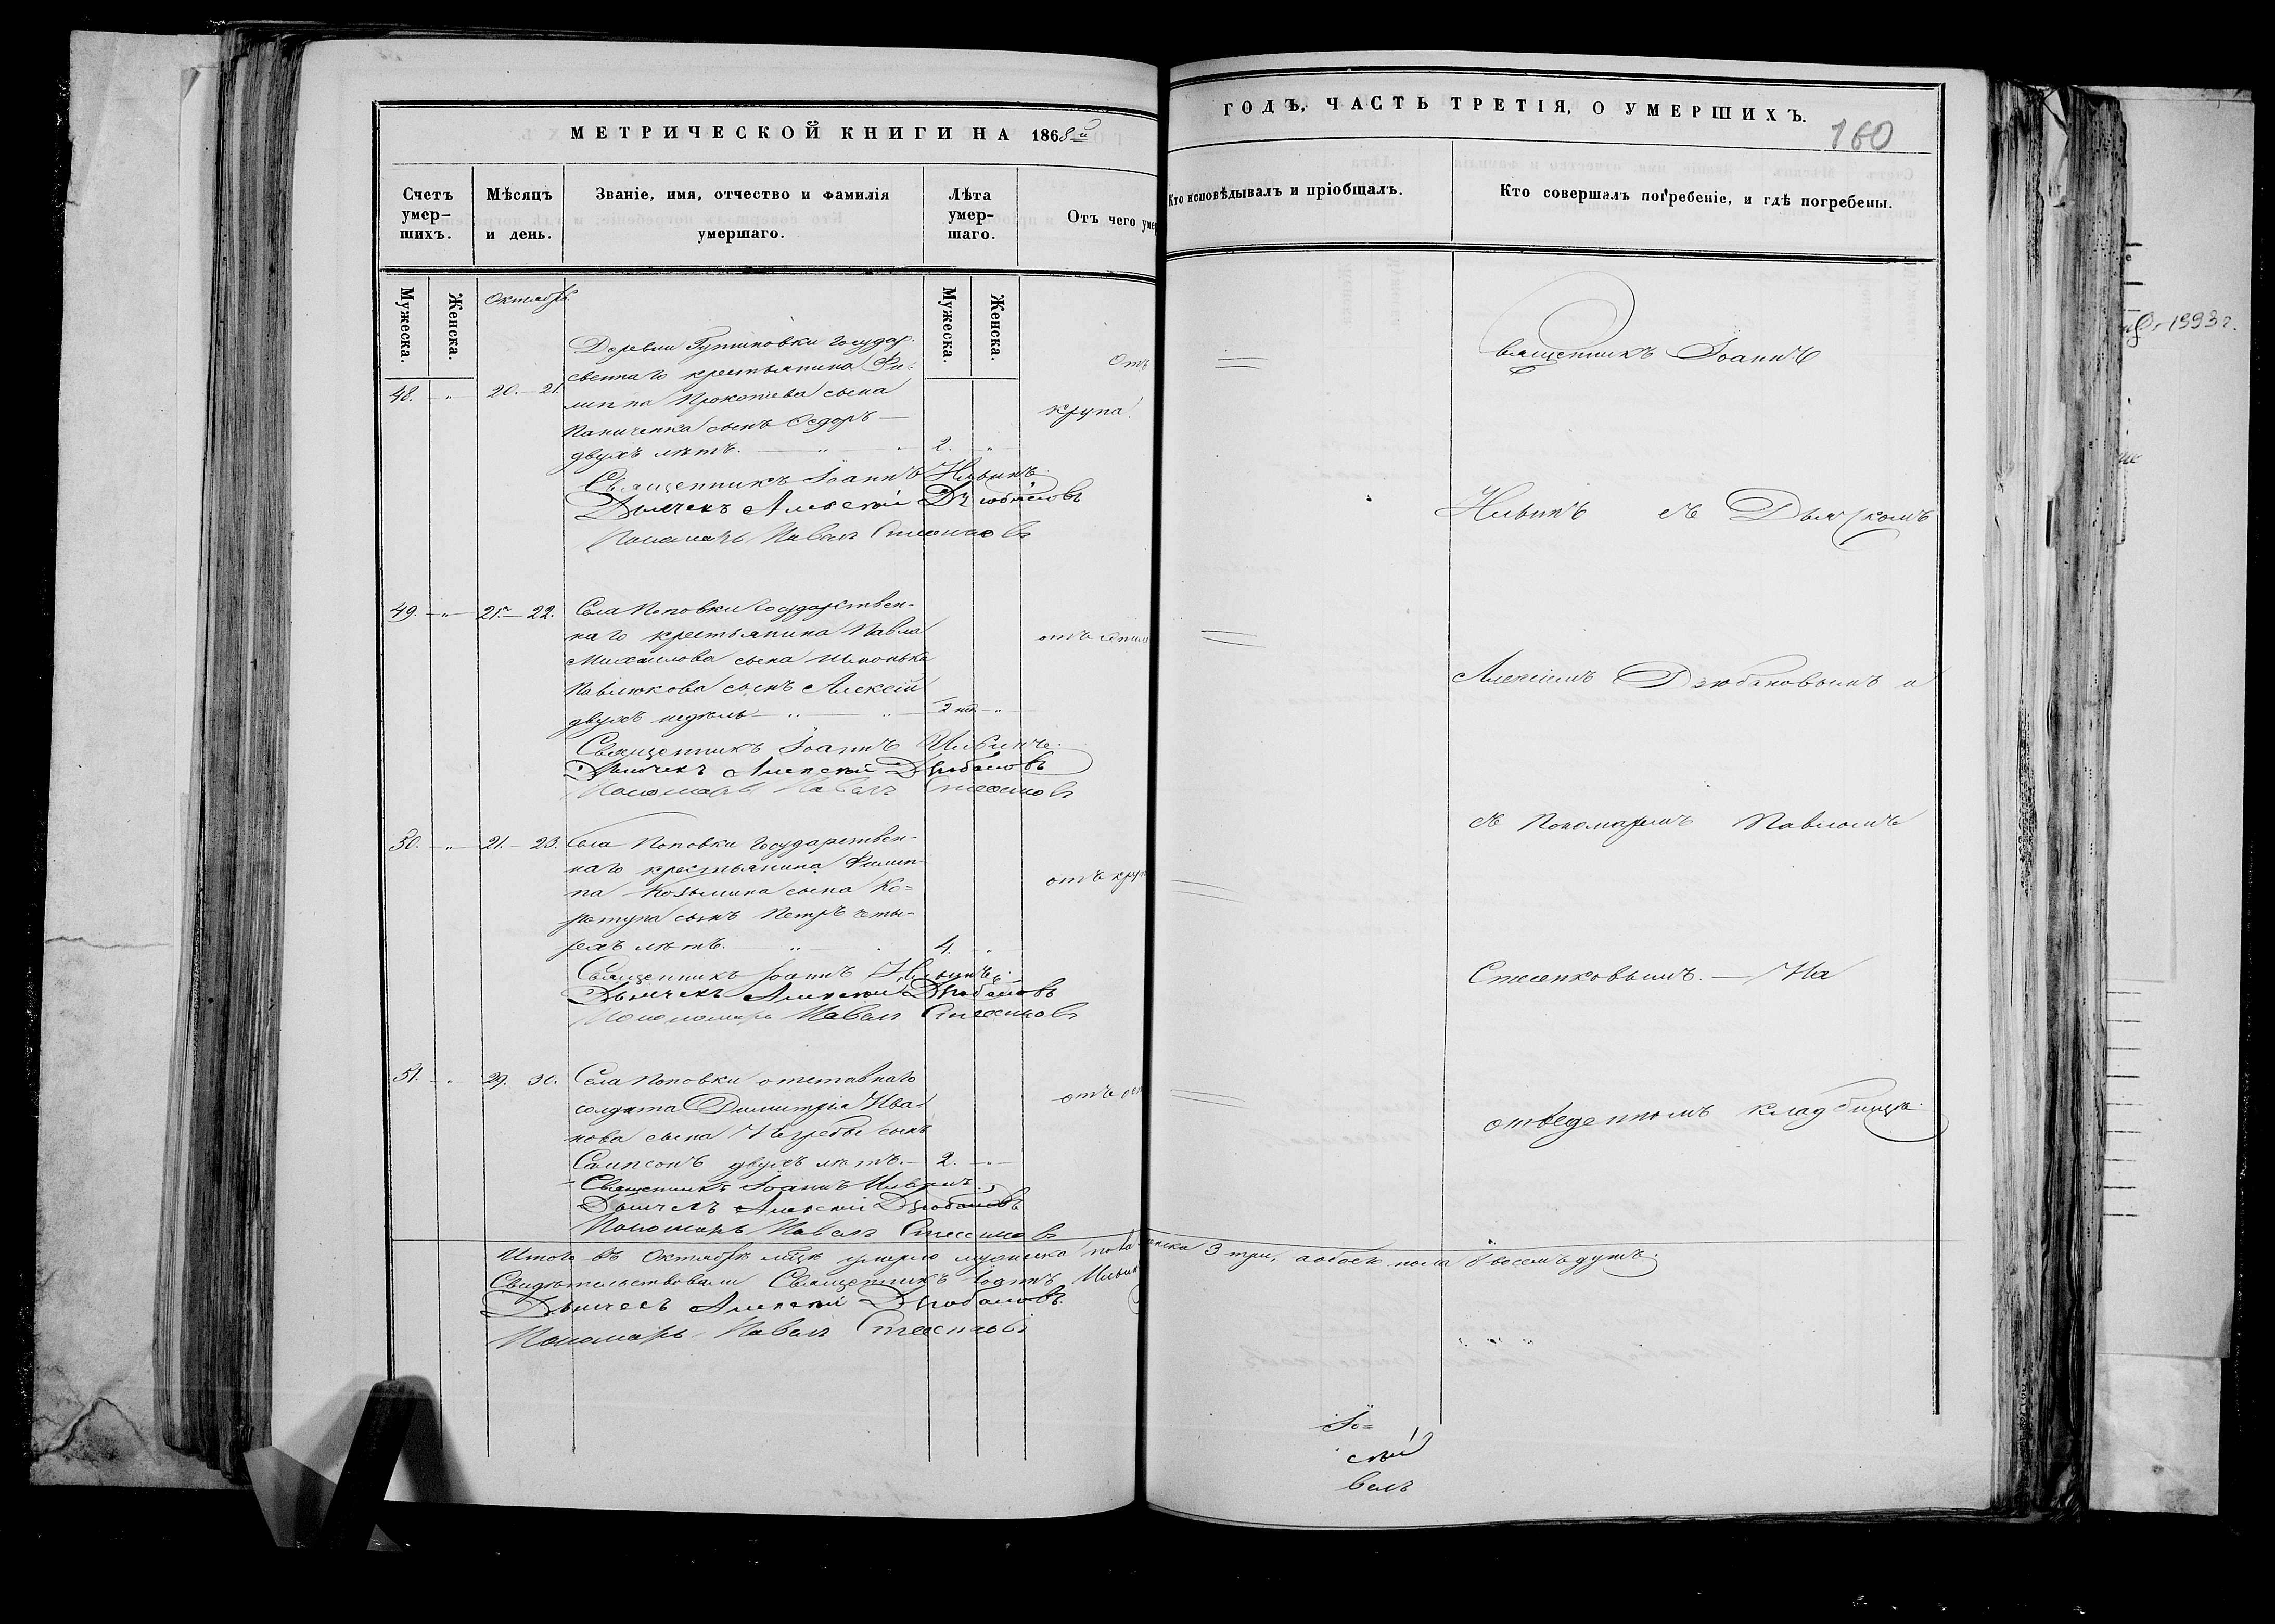 МЕТРИЧЕСКОЙ КНИГИ НА 1868й
Счетъ умер-шихъ.
Мѣсяцъ и день.
Званіе, имя, отчество и фамилія умершаго.
Лѣта умер-шаго.
Отъ чего уме
Мужеска.
Женска.
Октябрь.
Мужеска.
Женска.
48. " 20. – 21.
Деревни Гутниковки государ
свеннаго крестьянина Фи-
липпа Прокопіева сына
Паниченка сынъ Федоръ —
двухъ лѣтъ. — " 2. "
Отъ
крупа.
Священникъ Іоаннъ Ильинъ
Дьячекъ Алексій Дзюбановъ
Пономарь Павелъ
49. " 21. – 22.
Села Поповки Государствен-
наго крестьянина Павла
Михаилова сына
Павлюкова сынъ Алексій
двухъ недѣль — " — " 2 нед. "
отъ
Священникъ Іоаннъ Ильинъ.
Дьячекъ Алексій Дзюбановъ
Пономарь Павелъ
50. " 21. – 23.
Села Поповки Государствен-
наго крестьянина Филип-
па Козьмина сына Ко=
ропупа сынъ Петръ четы-
рехъ лѣтъ. " 4. "
отъ круп
Священникъ Іоаннъ Ильинъ.
Дьячекъ Алексій Дзюбановъ
Пономарь Павелъ
51. " 29. 30.
Села Поповки отставнаго
солдата Димитрія Ива-
нова сына сынъ
Сампсонъ двухъ лѣтъ. — 2. "
отъ
Священникъ Іоаннъ Ильинъ.
Дьячекъ Алексій Дзюбановъ
Пономарь Павелъ
Итого въ Октябрѣ м̃цѣ умерло мужеска пола женска 3 три, а обоего пола 8 восемъ душъ.
Свидѣтельствовали Священникъ Іоаннъ Ильин
Дьячекъ Алексій Дзюбановъ.
Пономарь Павелъ
ГОДЪ, ЧАСТЬ ТРЕТІЯ, О УМЕРШИХЪ.
160
Кто исповѣдывалъ и пріобщалъ.
Кто совершалъ погребеніе, и гдѣ погребены.
Священникъ Іоаннъ
Ильинъ съ Дьячкомъ
Алексіемъ Дзюбановымъ и
съ Пономаремъ Павломъ
На
отведенномъ кладбищѣ.
Іо=
сѣй
валъ
1993 г.